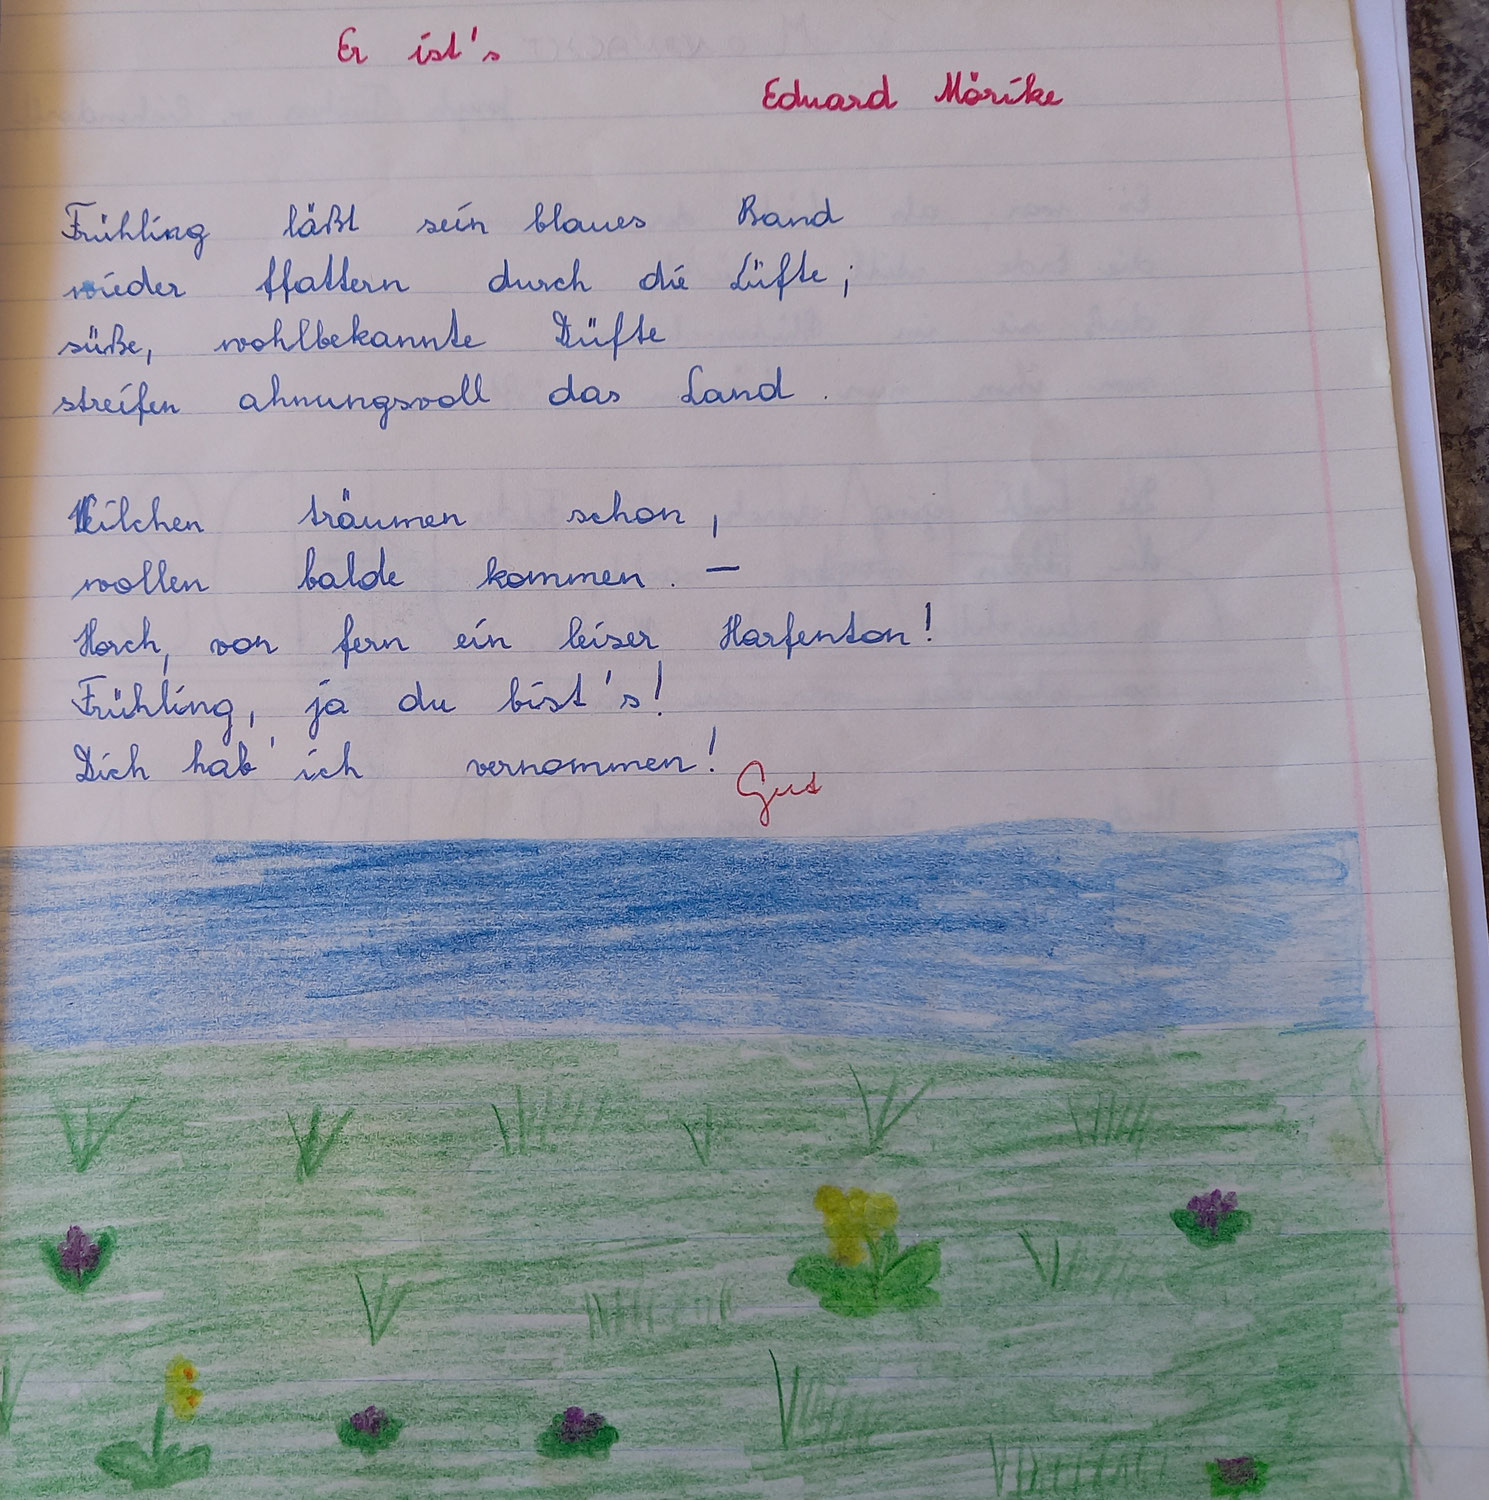 Er ist's
Eduard Mörike
Frühling läßt sein blaues Band
wieder flattern durch die Lüfte;
süße, wohlbekannte Düfte
streifen ahnungsvoll das Land.
Veilchen träumen schon,
wollen balde kommen. –
Horch, von fern ein leiser Harfenton!
Frühling, ja du bist's!
Dich hab' ich vernommen!
Gut